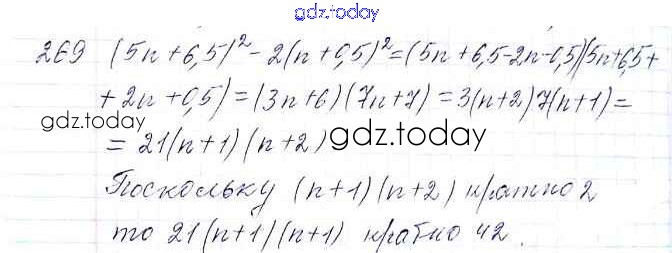 gdz.today
269 (5n+6,5)²-2(n+0,5)²=(5n+6,5-2n-0,5)(5n+6,5+
+2n+0,5)=(3n+6)(7n+7)=3(n+2)7(n+1)=
gdz.today
=21(n+1)(n+2) gdz.today
Поскольку (n+1)(n+2) кратно 2
то 21(n+1)(n+1) кратно 42.